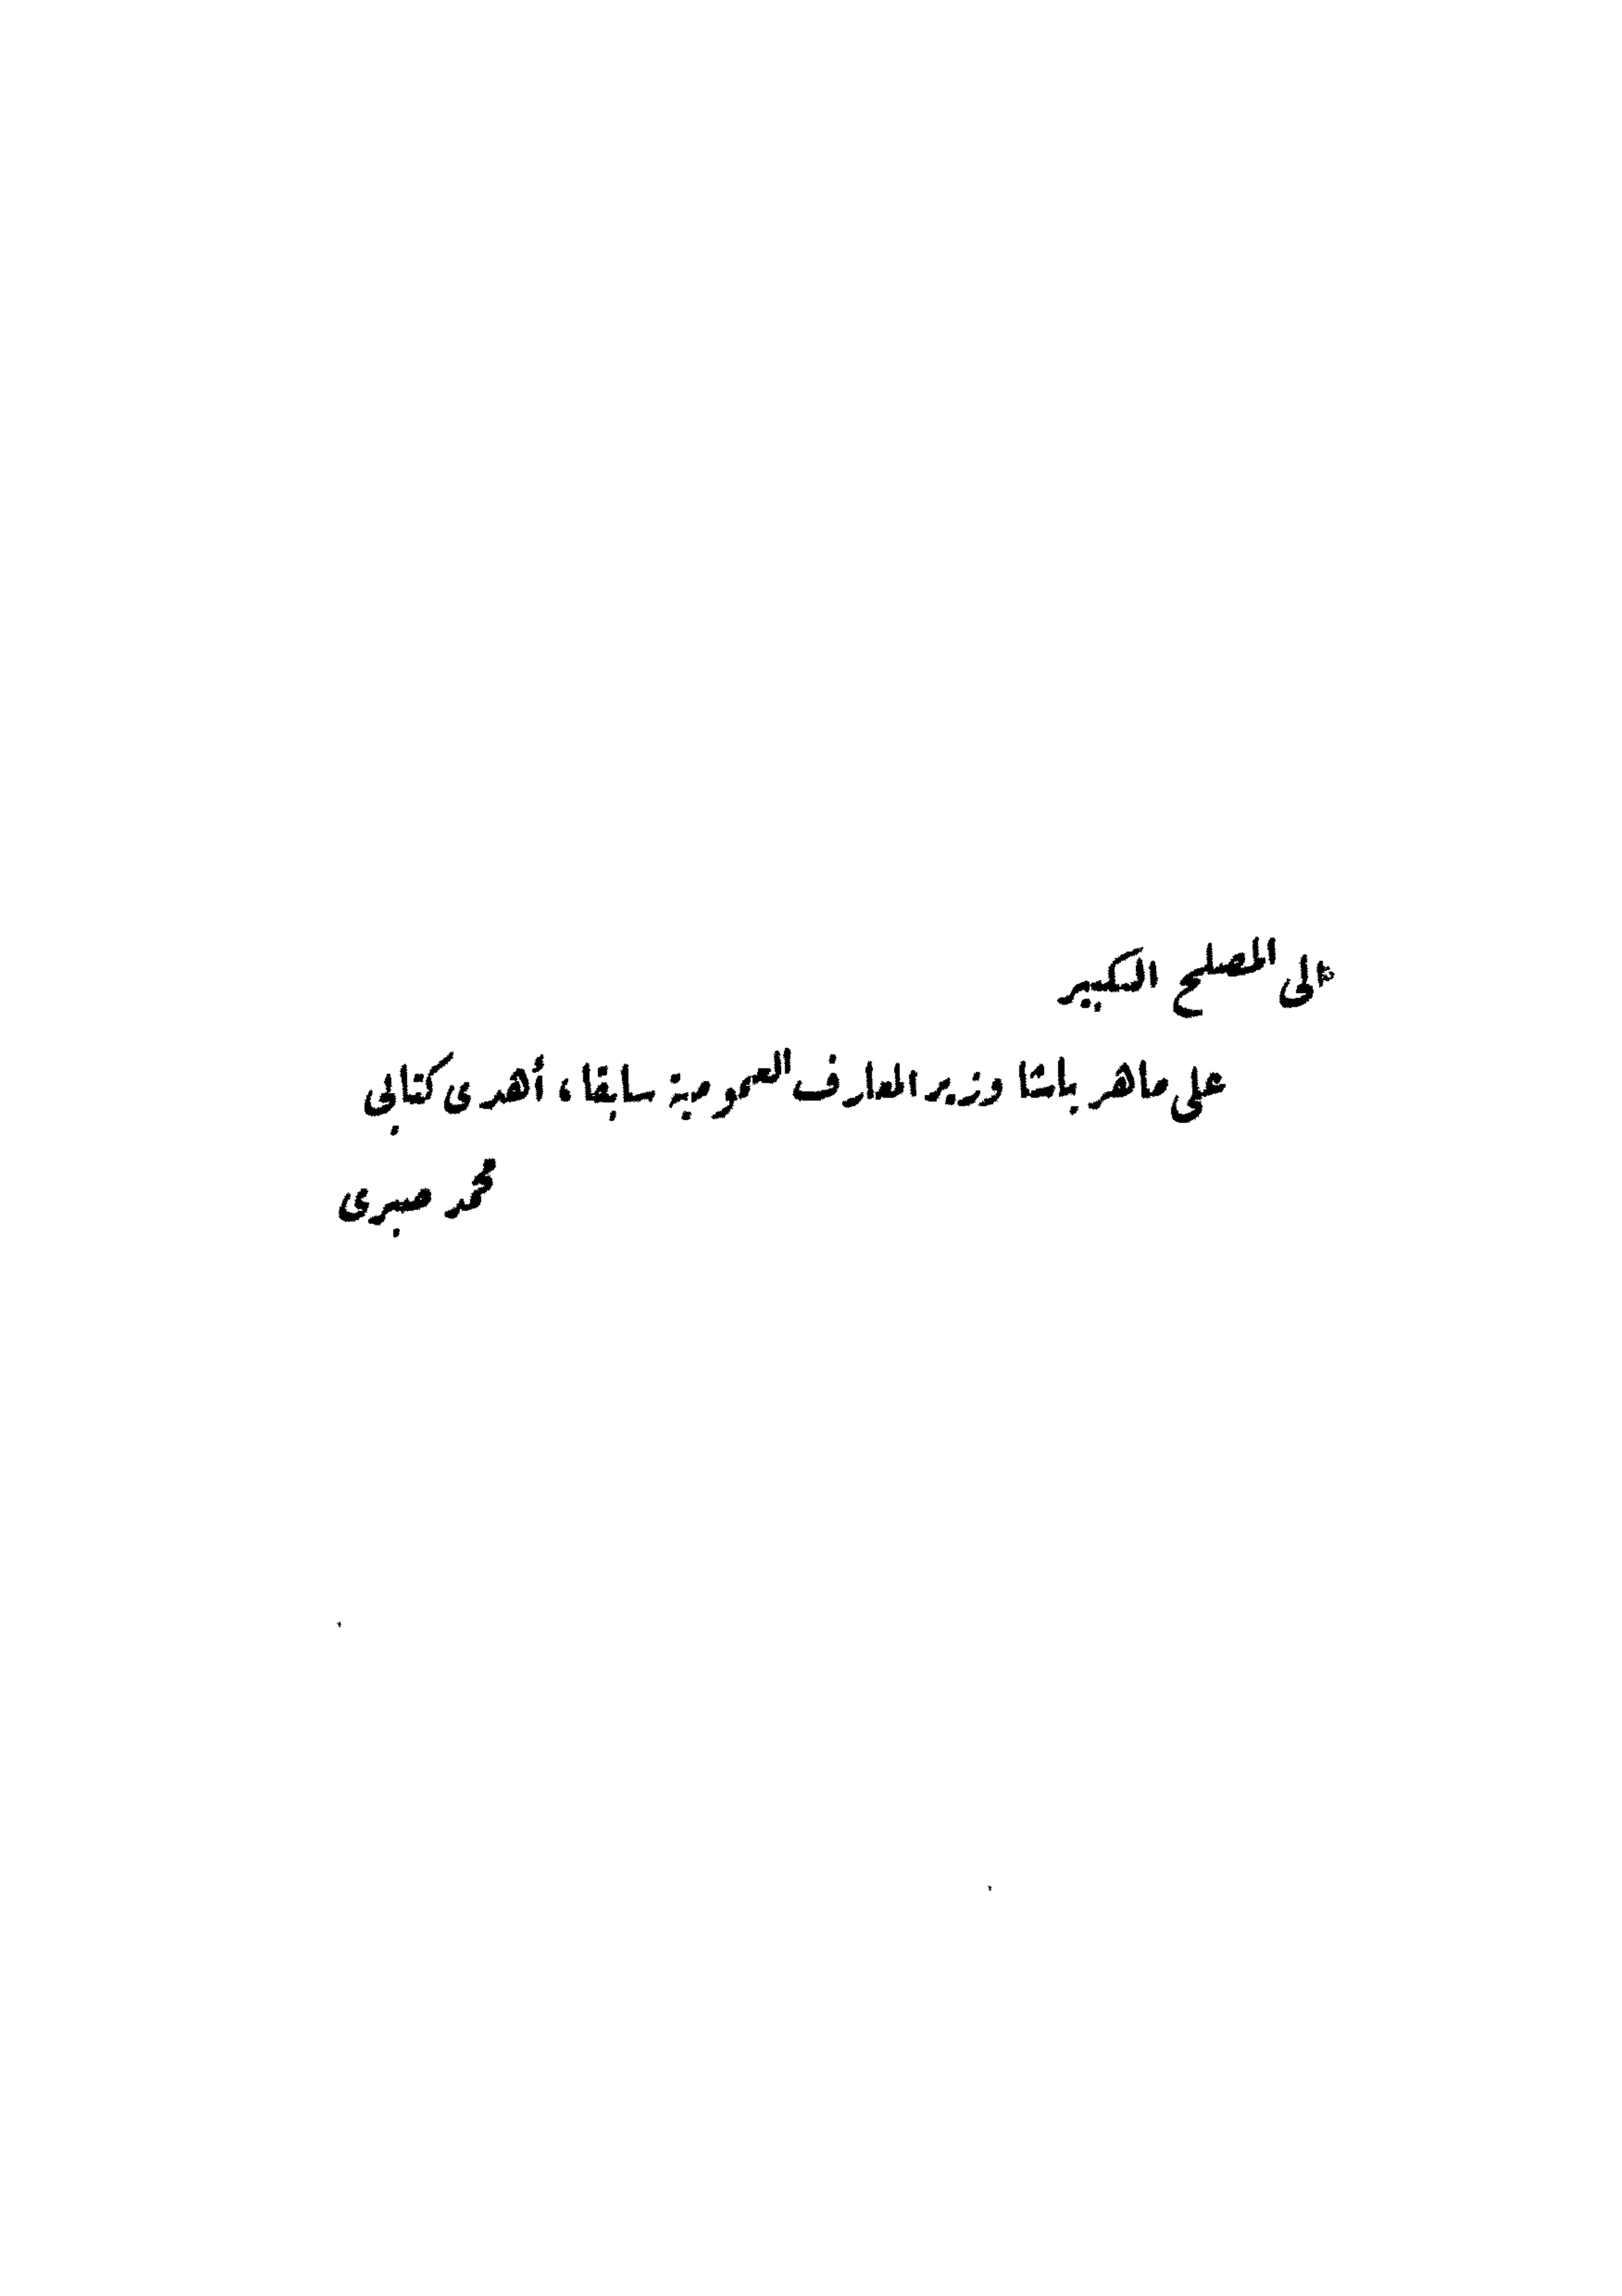 الى المصلح الكبير
على ماهر باشا وزير المعارف العمومية سابقا، أهدى كتابى
محمد صبرى